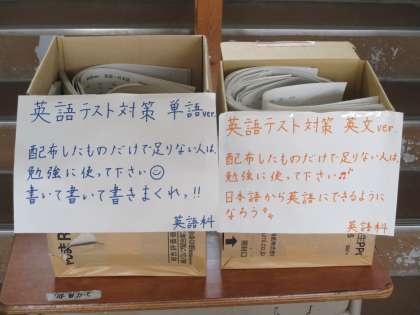 英語テスト対策 単語ver.
配布したものだけで足りない人は、
勉強に使って下さい☺
書いて書いて書きまくれっ!!
英語科
英語テスト対策 英文ver.
配布したものだけで足りない人は、
勉強に使って下さい♬
日本語から英語にできるように
なろう
英語科